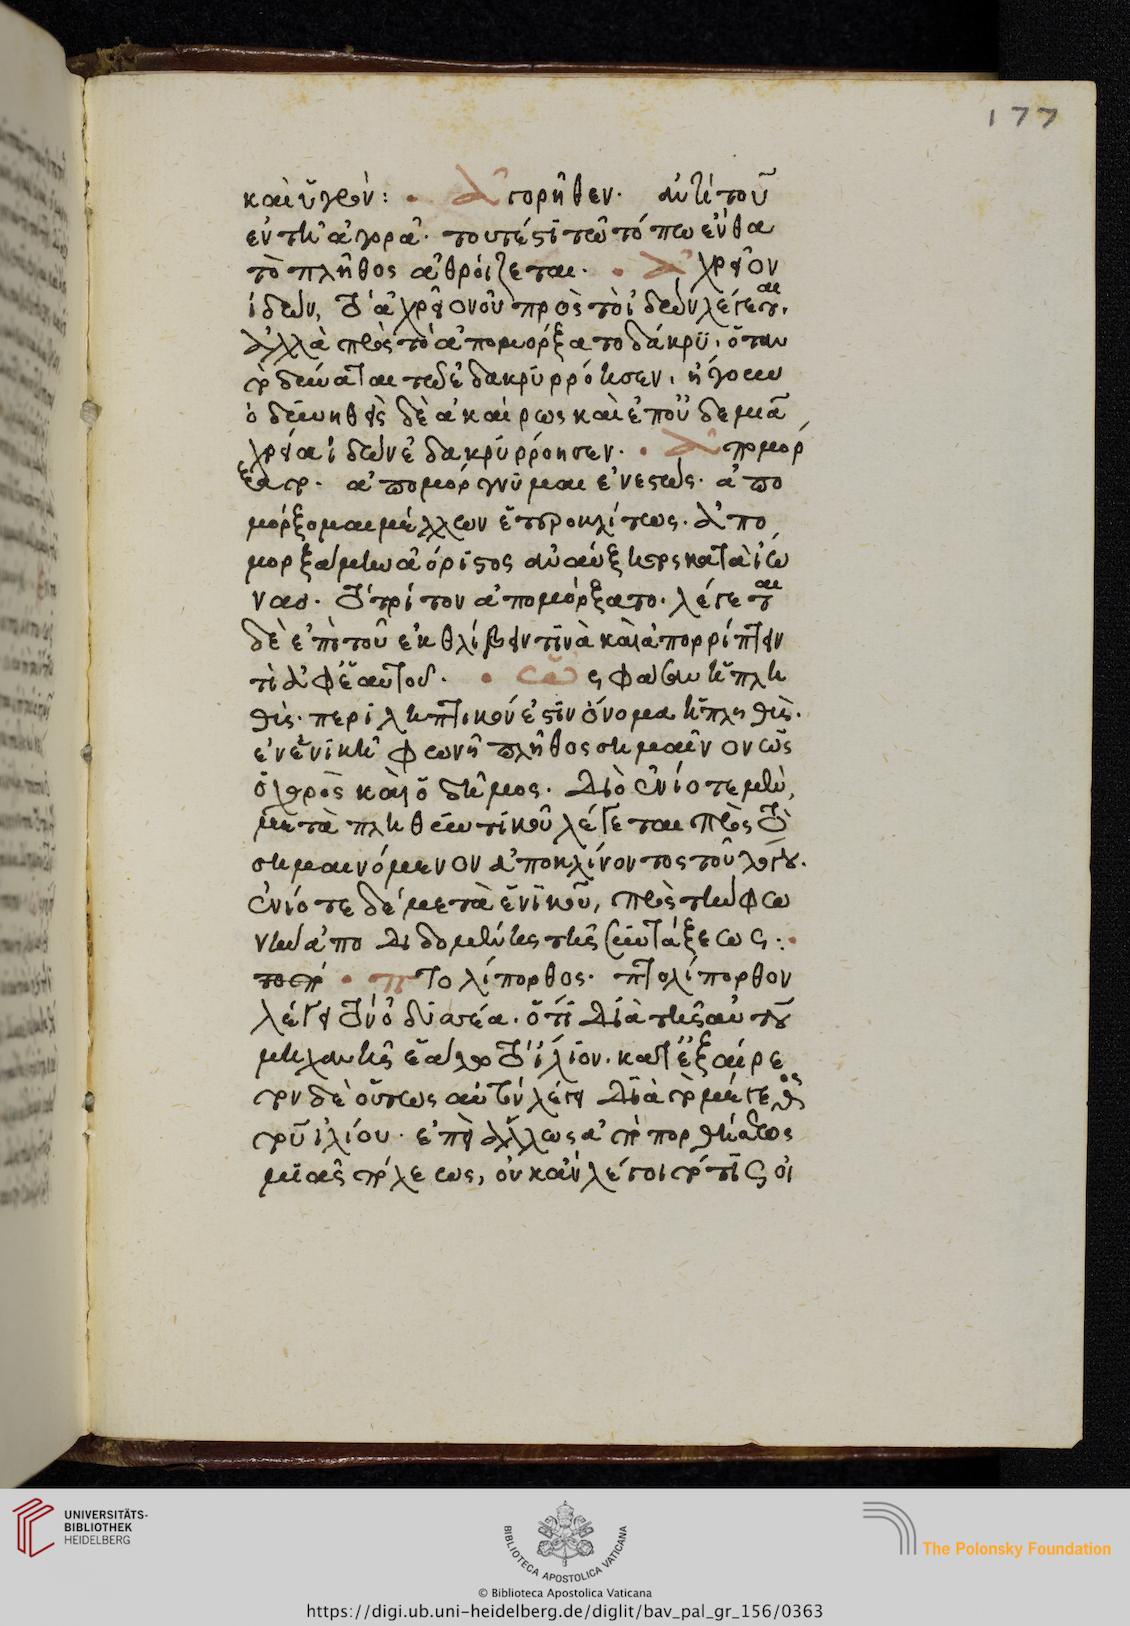 177
καὶ ὑγρόν: • Ἀγορῆθεν. ἀντὶ τοῦ
ἐν τῆ ἀγορᾶ. τουτέστι τῶ τόπω ἔνθα
τὸ πλῆθος ἀθροίζεται. • Ἀχρεῖον
ἰδών, τὸ ἀχρεῖον οὐ πρὸς τὸ ἰδὼν λέγεται.
ἀλλὰ πρὸς τὸ ἀπομόρξατο δάκρυ.
ἐδακρυρρόησεν. ἤγουν
δὲ ἀκαίρως καὶ ἐπ' οὐδεμιᾶ
χρεία ἰδὼν ἐδακρυρρόησεν. • ἀπομόρ
ξατο. ἀπομόργνυμαι ἐνεστώς. ἀπο
μόρξομαι μέλλων ἑτεροκλίτως. ἀπο
μορξάμην ἀόριστος ἀναύξητος κατὰ ἴω
νας. τὸ τρίτον ἀπομόρξατο. λέγεται
δὲ ἐπὶ τοῦ ἐκθλίβειν τινὰ καὶ ἀπορρίπτειν
τὶ ἀφ' ἑαυτοῦ. • ς φάσαν ἡ πλη
θύς. περιληπτικόν ἐστιν ὄνομα ἡ πληθύς.
ἐν ἑνικῆ φωνῆ πλῆθος σημαῖνον ὡς
ὁ χορὸς καὶ ὁ δῆμος. Διὸ ἐνίοτε μὲν,
μετὰ πληθυντικοῦ λέγεται πρὸς τὸ
σημαινόμενον ἀποκλίνοντος τοῦ λόγου.
ἐνίοτε δὲ μετὰ ἑνικοῦ, πρὸς τὴν φω
νὴν ἀποδιδομένης τῆς συντάξεως :•
• πτολίπορθος. πτολίπορθον
λέγει τὸν ὀδυσσέα. ὅτι διὰ τῆς αὐτοῦ
μηχανῆς ἑάλω τὸ ἴλιον. κατ' ἐξαίρε
τον δὲ οὕτως αὐτὸν λέγει διὰ τὸ μέγεθος
τοῦ ἰλίου. ἐπεὶ ἄλλως ἀπὸ πορθήματος
μιᾶς πόλεως, οὐκ ἂν λέγοιτό τις οἱ
UNIVERSITÄTS-
BIBLIOTHEK
HEIDELBERG
BIBLIOTECA APOSTOLICA VATICANA
The Polonsky Foundation
© Biblioteca Apostolica Vaticana
https://digi.ub.uni-heidelberg.de/diglit/bav_pal_gr_156/0363